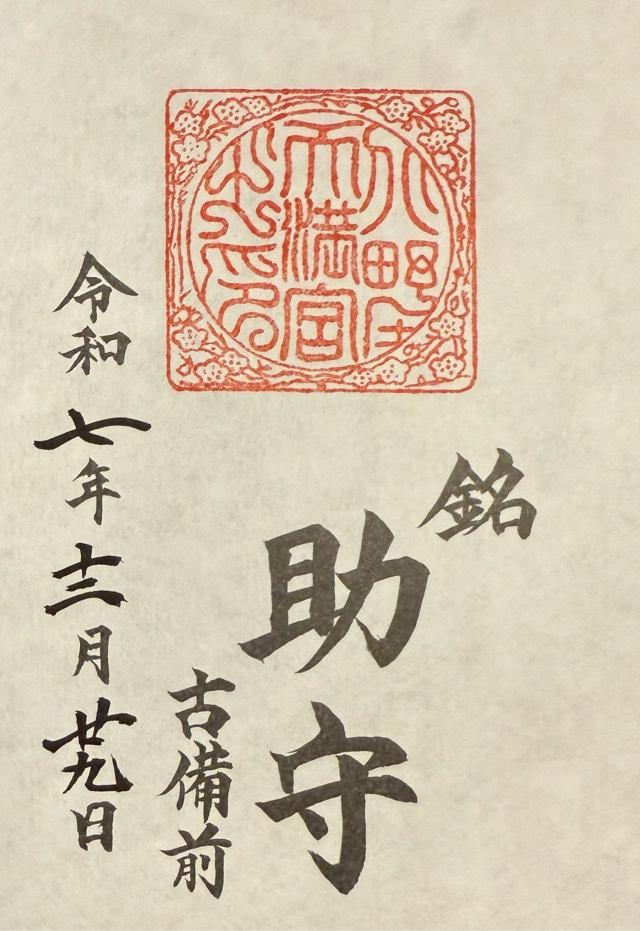 天満宮
銘
助守
古備前
令和七年十二月廿九日